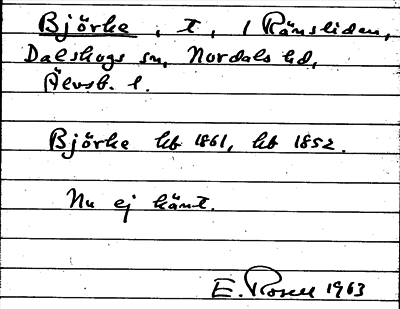 Björke, t, / Ränsliden,
Dalskogs sn, Nordals hd,
Älvsb. l.
Björke hb 1861, hb 1852.
Nu ej känt.
E. Rosell 1963